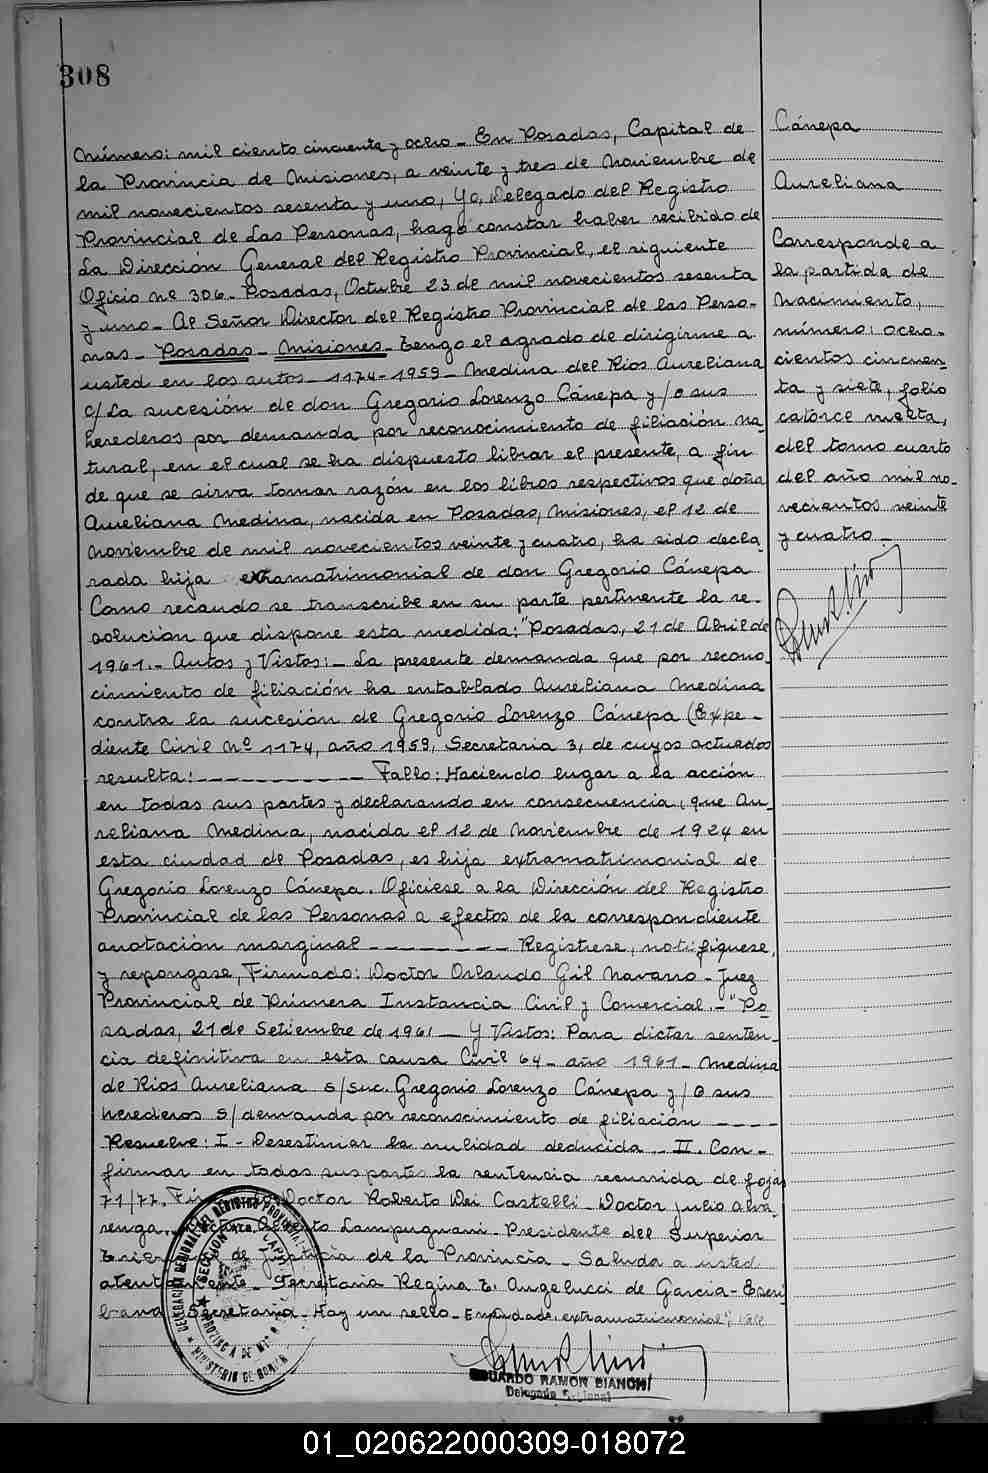 308
Número: mil ciento cincuenta y ocho _ En Posadas, Capital de
la Provincia de Misiones, a veinte y tres de Noviembre de
mil novecientos sesenta y uno, Yo, Delegado del Registro
Provincial de Las Personas, hago constar haber recibido de
La Dirección General del Registro Provincial, el siguiente
Oficio nº 306 _ Posadas, Octubre 23 de mil novecientos sesenta
y uno _ Al Señor Director del Registro Provincial de las Perso-
nas _ Posadas _ Misiones _ Tengo el agrado de dirigirme a
usted en los autos _ 1174-1959 _ Medina del Rios Aureliana
c/ La sucesión de don Gregorio Lorenzo Cánepa y/o sus
herederos por demanda por reconocimiento de filiación na-
tural, en el cual se ha dispuesto librar el presente, a fin
de que se sirva tomar razón en los libros respectivos que doña
Aureliana Medina, nacida en Posadas, Misiones, el 12 de
Noviembre de mil novecientos veinte y cuatro, ha sido decla-
rada hija extramatrimonial de don Gregorio Cánepa
Como recaudo se transcribe en su parte pertinente la re-
solución que dispone esta medida: "Posadas, 21 de Abril de
1961.- Autos y Vistos: _ La presente demanda que por recono-
cimiento de filiación ha entablado Aureliana Medina
contra la sucesión de Gregorio Lorenzo Cánepa (Expe-
diente Civil Nº 1174, año 1959, Secretaria 3, de cuyos actuados
resulta: _ _ _ _ _ _ _ _ _ _ Fallo: Haciendo lugar a la acción
en todas sus partes y declarando en consecuencia, que Au-
reliana Medina, nacida el 12 de Noviembre de 1924 en
esta ciudad de Posadas, es hija extramatrimonial de
Gregorio Lorenzo Cánepa. Oficiese a la Dirección del Registro
Provincial de las Personas a efectos de la correspondiente
anotación marginal _ _ _ _ _ _ _ _ Registrese, notifiquese,
y repongase, Firmado: Doctor Orlando Gil Navarro _ Juez
Provincial de Primera Instancia Civil y Comercial. _ "Po-
sadas, 21 de Setiembre de 1961 _ Y Vistos: Para dictar senten-
cia definitiva en esta causa Civil 64 _ año 1961 _ Medina
de Rios Aureliana s/suc. Gregorio Lorenzo Cánepa y/o sus
herederos s/demanda por reconocimiento de filiación _ _ _ _
Resuelve: I _ Desestimar la nulidad deducida _ II. Con-
firmar en todas sus partes la sentencia recurrida de fojas
71/77. Doctor Roberto Dei Castelli _ Doctor Julio Alva-
renga, Lampugnani _ Presidente del Superior
de Justicia de la Provincia _ Saluda a usted
atentamente _ Secretaria Regina E. Angelucci de Garcia - Escri-
bana Secretaria _ Hay un sello _ Enmendado: extramatrimonial", Vale
EDUARDO RAMON BIANCHI
Delegado Regional
DELEGACION REGIONAL DEL REGISTRO PROVINCIAL
SECCION CAPITAL
PROVINCIA DE MISIONES
MINISTERIO DE GOBIERNO
Cánepa
Aureliana
Corresponde a
la partida de
Nacimiento,
número: ocho-
cientos cincuen-
ta y siete, folio
catorce vuelta,
del tomo cuarto
del año mil no-
vecientos veinte
y cuatro _
01_020622000309-018072